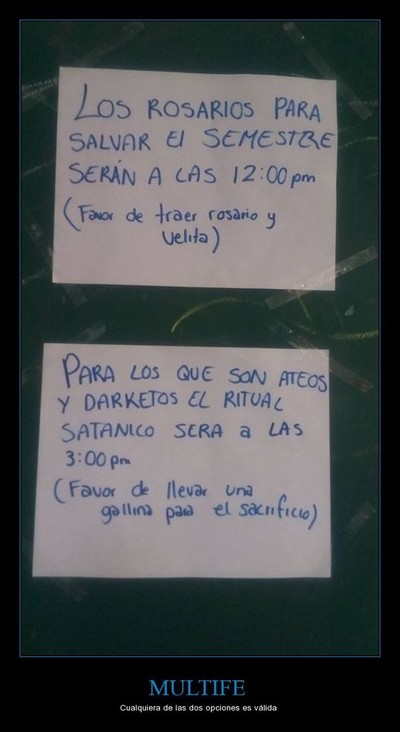 LOS ROSARIOS PARA
SALVAR El SEMESTRE
SERÁN A LAS 12:00 pm
(Favor de traer rosario y
velita)
PARA LOS QUE SON ATEOS
Y DARKETOS EL RITUAL
SATANICO SERA a LAS
3:00 pm
(Favor de llevar una
gallina para el sacrificio)
MULTIFE
Cualquiera de las dos opciones es válida